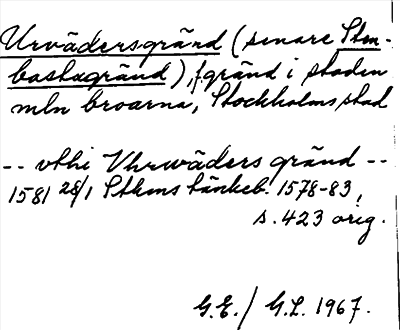 Urvädersgränd (senare Sten-
bastugränd), fgränd i staden
mln broarna, Stockholms stad
-- vthi Vhrwäders gränd --
1581 28/1 Sthms tänkeb. 1578-83,
s. 423 orig.
G.E./ G.L. 1967.